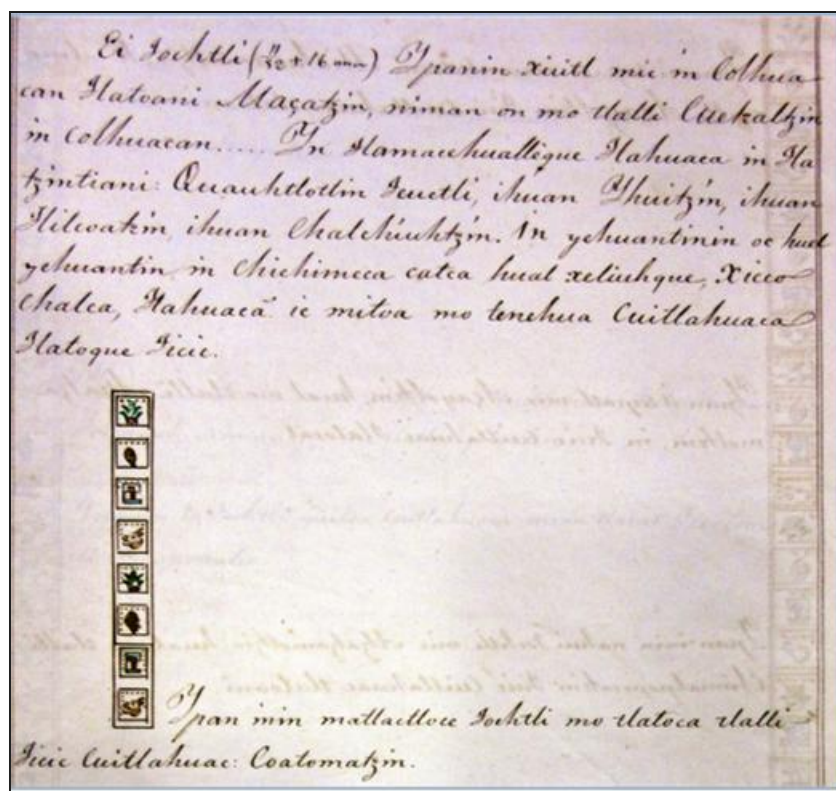 Ei Tochtli ( Ypanin xiuitl mic in Colhua-
can Tlatoani Maçatzin, niman on mo tlalli Cuetzaltzin
in Colhuacan..... Yn tlamacehuallèque Tlahuaca in Tla
tzintiani: Quauhtlotlin Teuctli, ihuan Yhuitzin, ihuan
Tlilcoatzin, ihuan Chalchiuhtzin. In yehuantinin oc huel
yehuantin in Chichimeca catca hual xeliuhque, Xicco
Chalca, Tlahuacā ic mitoa mo tenehua Cuitlahuaca
Tlatoque Ticic.
Ypan inin matlactloce Tochtli mo tlatoca tlalli
Ticic Cuitlahuac: Coatomatzin.